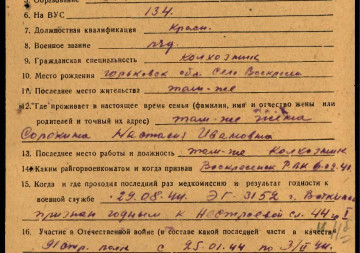 6. На ВУС 134.
7. Должностная квалификация Красн.
8. Военное звание ряд.
9. Гражданская специальность Колхозник
10. Место рождения Горьковск. обл. Село
11. Последнее место жительства там-же
12. Где проживает в настоящее время семья (фамилия, имя и отчество жены или
родителей и точный их адрес) там-же жена
Сорокина Настасья Ивановна
13. Последнее место работы и должность там-же Колхозник
14. Каким райгорвоенкоматом и когда призван РВК
15. Когда и где проходил последний раз медкомиссию и результат годности к
военной службе 29.08.44. ЭГ 3152 г. Воткинск
признан годным к нестроевой сл.
16. Участие в Отечественной войне (в составе какой последней части и в качестве
с 25.01.44 по